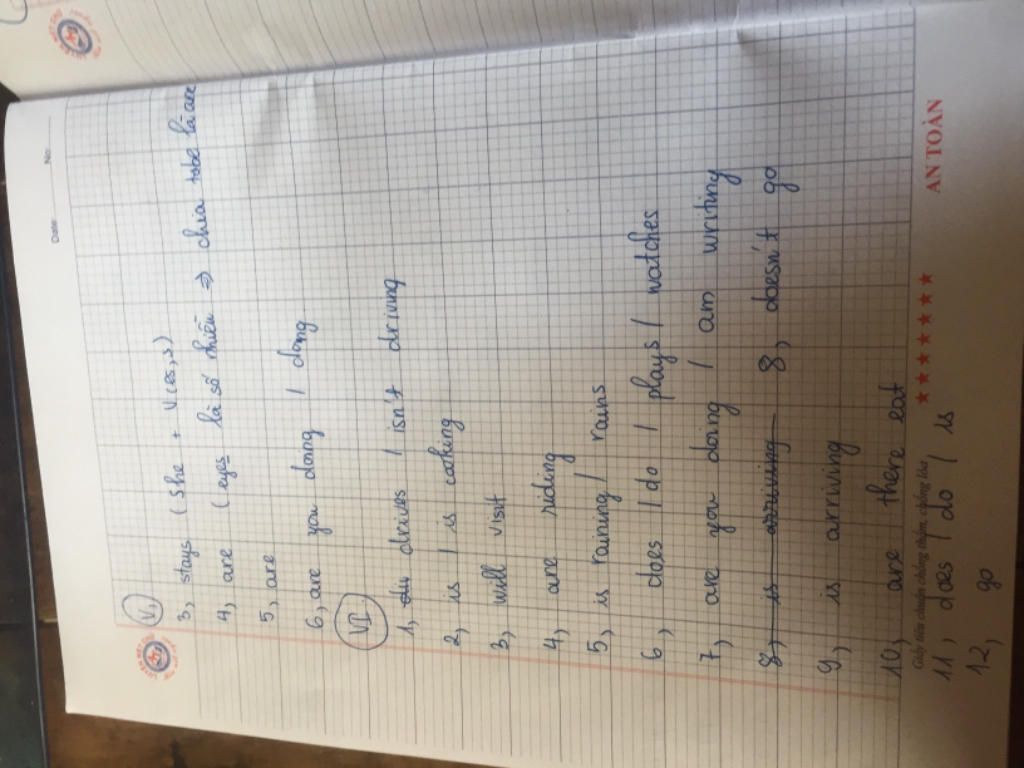 Date
No
V,
3, stays (she + V(es,s)
4, are (eyes là số nhiều => chia tobe là are
5, are
6, are you doing / doing
VI
1, drives / isn't driving
2, is / is cooking
3, will visit
4, are riding
5, is raining / rains
6, does / do / plays / watches
7, are you doing / am writing
8, is arriving 8, doesn't go
9, is arriving
10, are there eat
Giấy tiêu chuẩn chống thấm, chống lóa ★★★★★★★ AN TOÀN
11, does / do / is
12, go